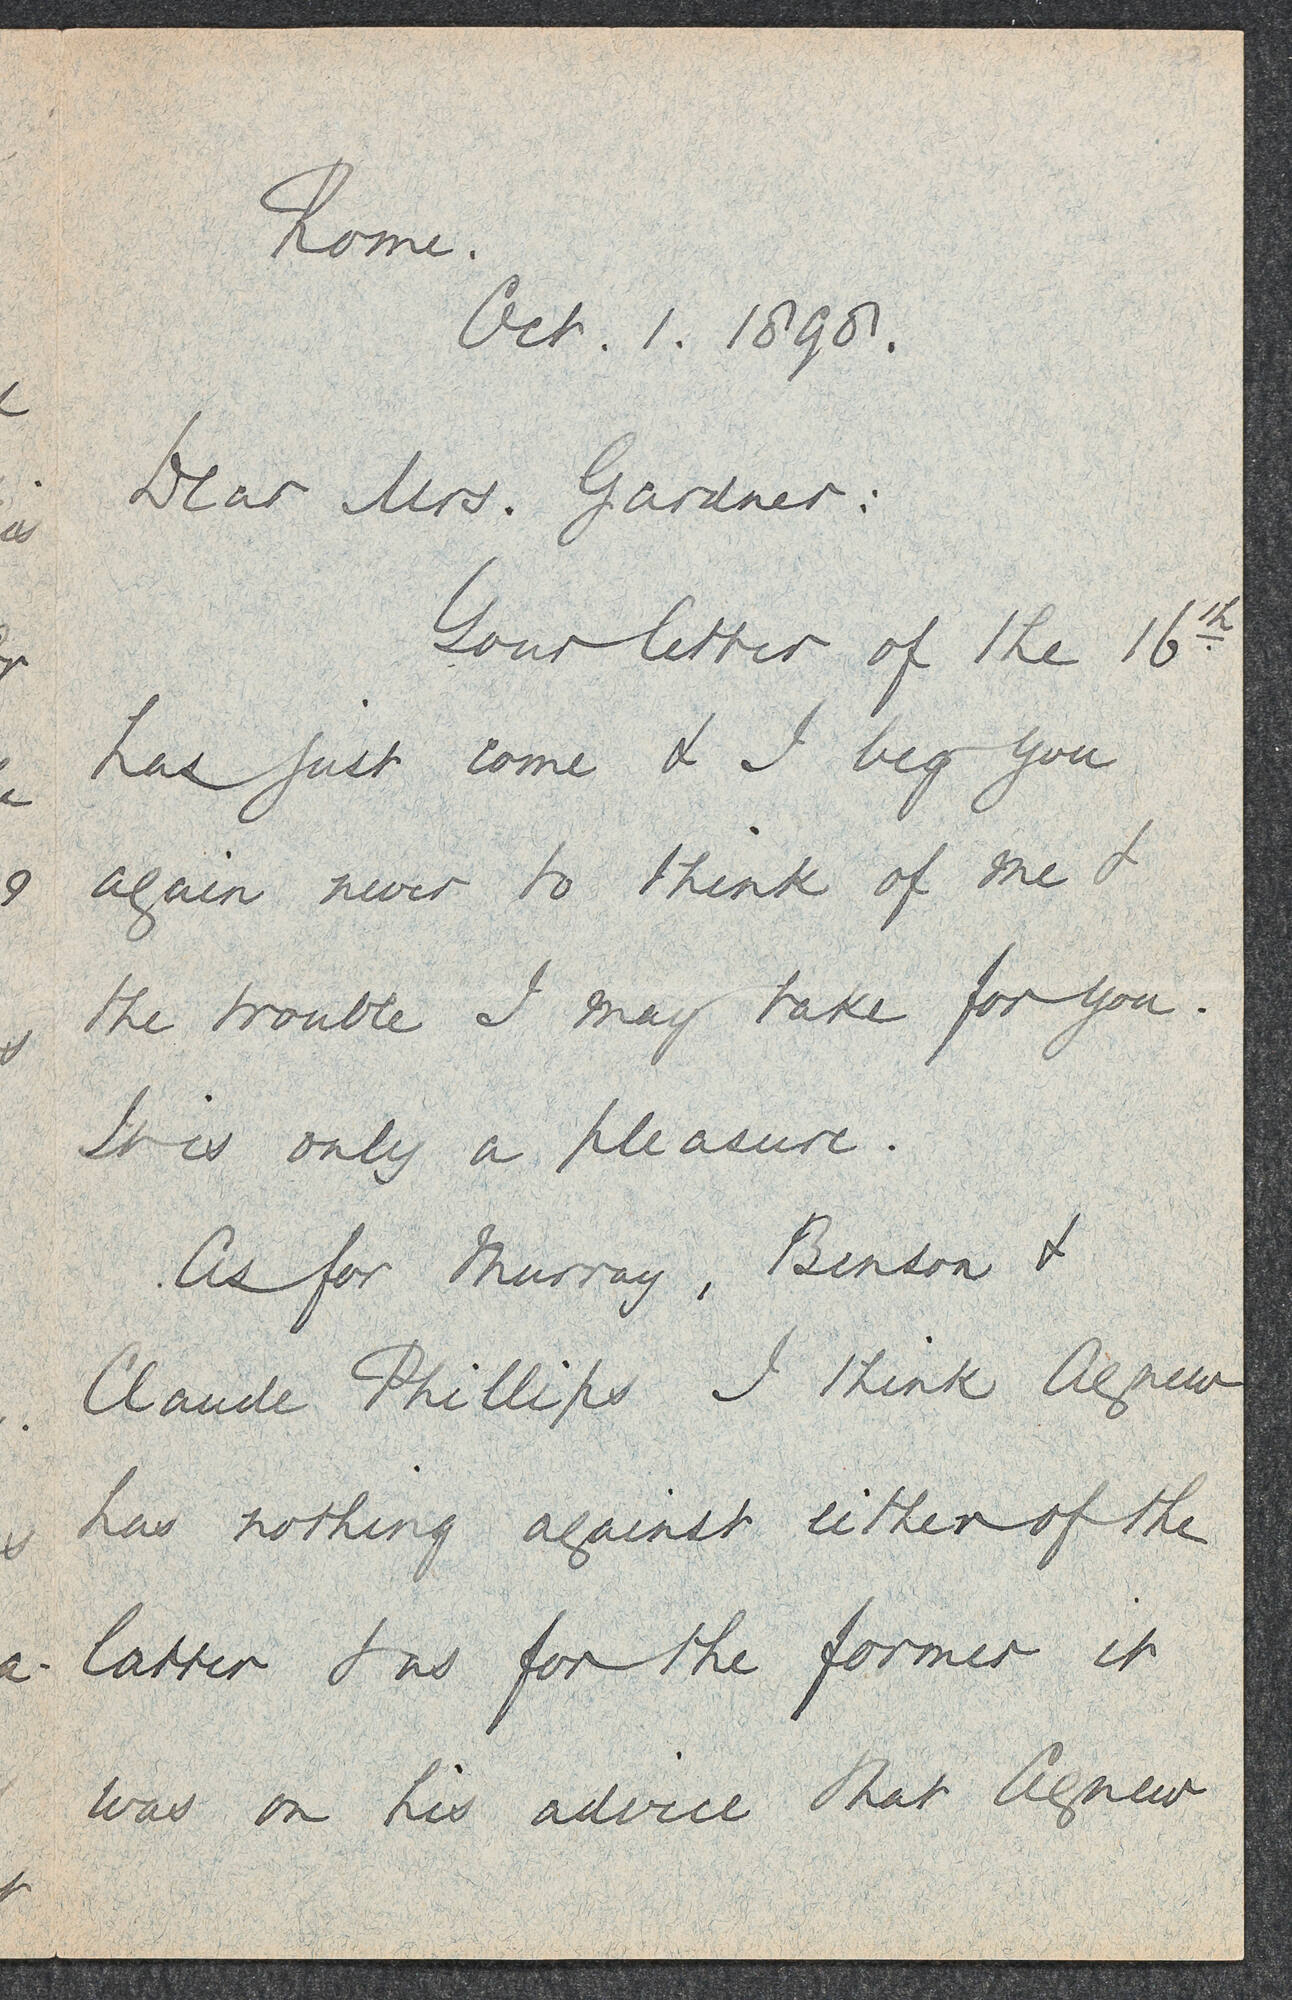 Rome.
Oct. 1. 1898.
Dear Mrs. Gardner:
Your letter of the 16th
has just come & I beg you
again never to think of me &
the trouble I may take for you.
It is only a pleasure.
As for Murray, Benson &
Claude Phillips I think Agnew
has nothing against either of the
latter & as for the former it
was on his advice that Agnew